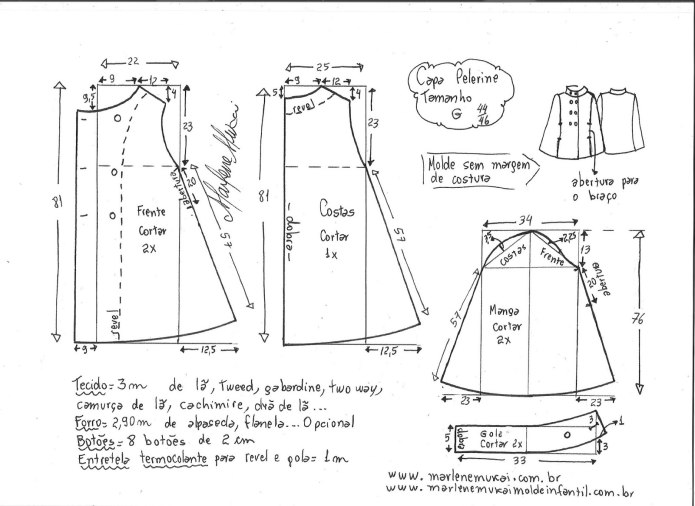 22
9
12
9,5
4
23
81
Frente
Cortar
2x
revel
abertura
20
57
9
12,5
Marlene Mukai
25
9
12
5
4
revel
23
81
dobra
Costas
Cortar
1x
57
12,5
Capa Pelerine
Tamanho
G 44
46
Molde sem margem
de costura
abertura para
o braço
34
Costas
Frente
2,25
13
abertura
20
57
76
Manga
Cortar
2x
23
23
5
dobra
Gola
Cortar 2x
3
1
3
33
Tecido= 3m de lã, tweed, gabardine, two way,
camurça de lã, cachimire, drã de lã...
Forro= 2,90m de alpaseda, flanela... Opcional
Botões= 8 botões de 2 cm
Entretela termocolante para revel e gola= 1m
www.marlenemukai.com.br
www.marlenemukaimoldeinfantil.com.br